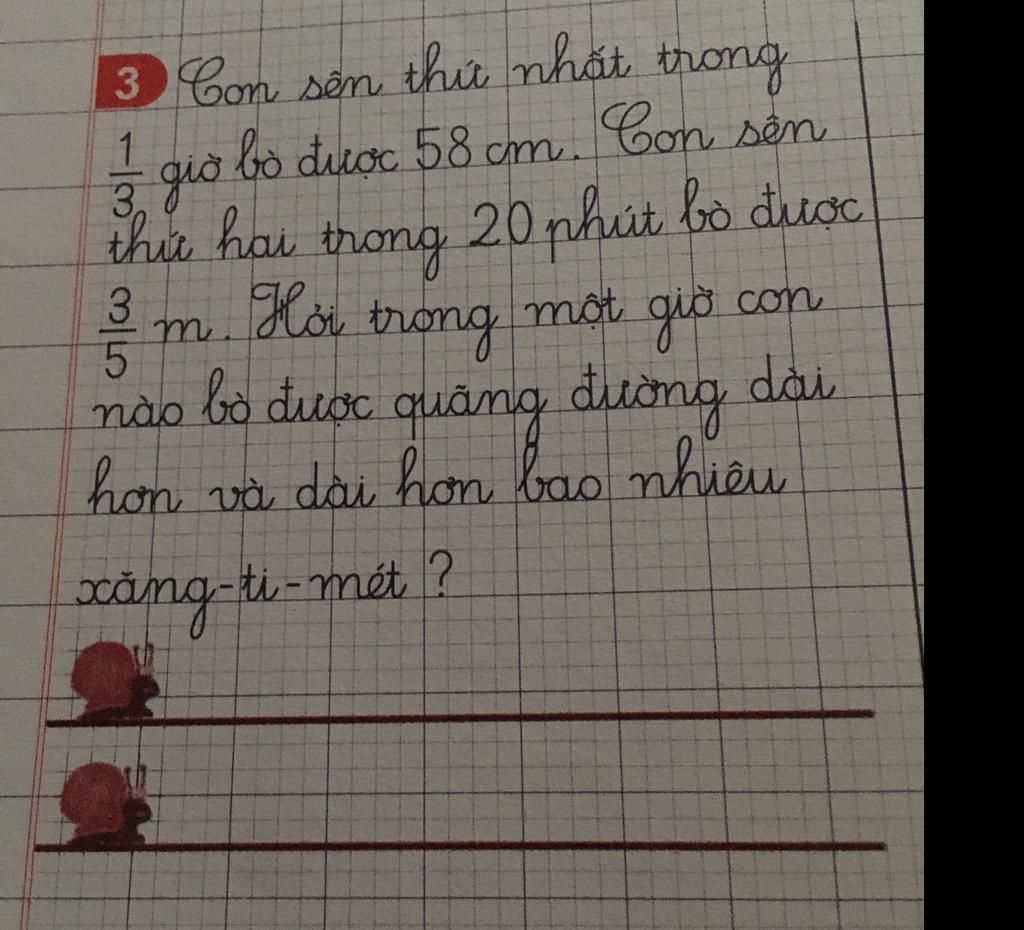 3 Con sên thứ nhất trong
1/3 giờ bò được 58 cm. Con sên
thứ hai trong 20 phút bò được
3/5 m. Hỏi trong một giờ con
nào bò được quãng đường dài
hơn và dài hơn bao nhiêu
xăng-ti-mét ?